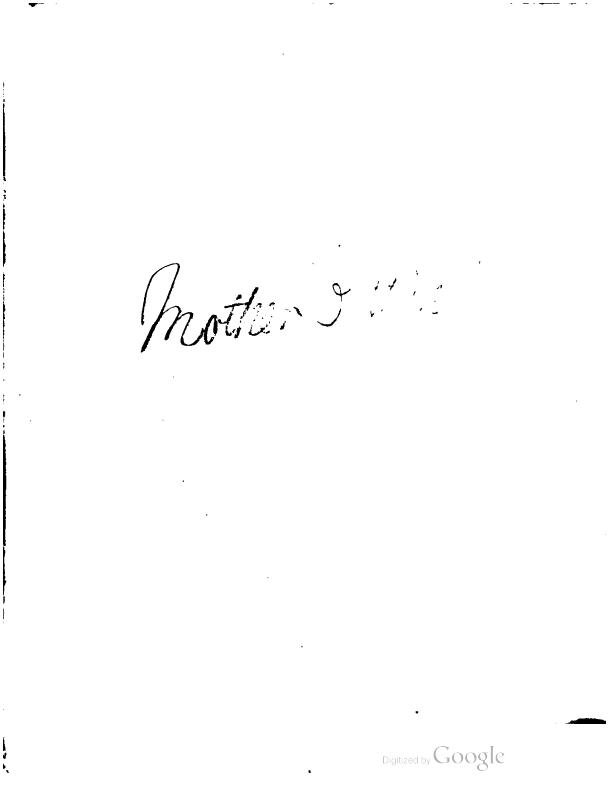 Mother I
Digitized by Google